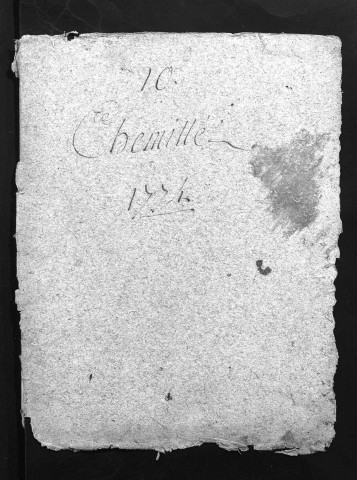 10.
Chemillé
1774.